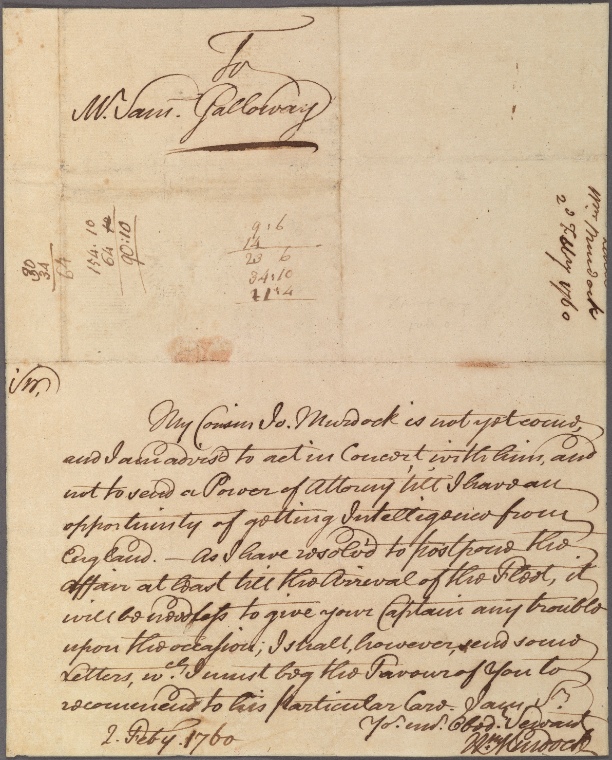 To
Mr. Sam. Galloway
9:6
14
23 6
34:10
154. 10
64
90:10
90
34
64
Wm. Murdock
2d Feby 1760
Sir,
My Cousin Jo. Murdock is not yet come,
and I am advis'd to act in Concert with him, and
not to send a Power of Attorny till I have an
opportunity of getting Intelligence from
England. — As I have resolv'd to postpone the
affair at least till the Arrival of the Fleet, it
will be needless to give your Captain any trouble
upon the occasion; I shall, however, send some
Letters, wch. I must beg the Favour of You to
recommend to his Particular Care. I am, Sr.
Yor. mo. Obedt. Servant
2. Feby. 1760
Wm. Murdock